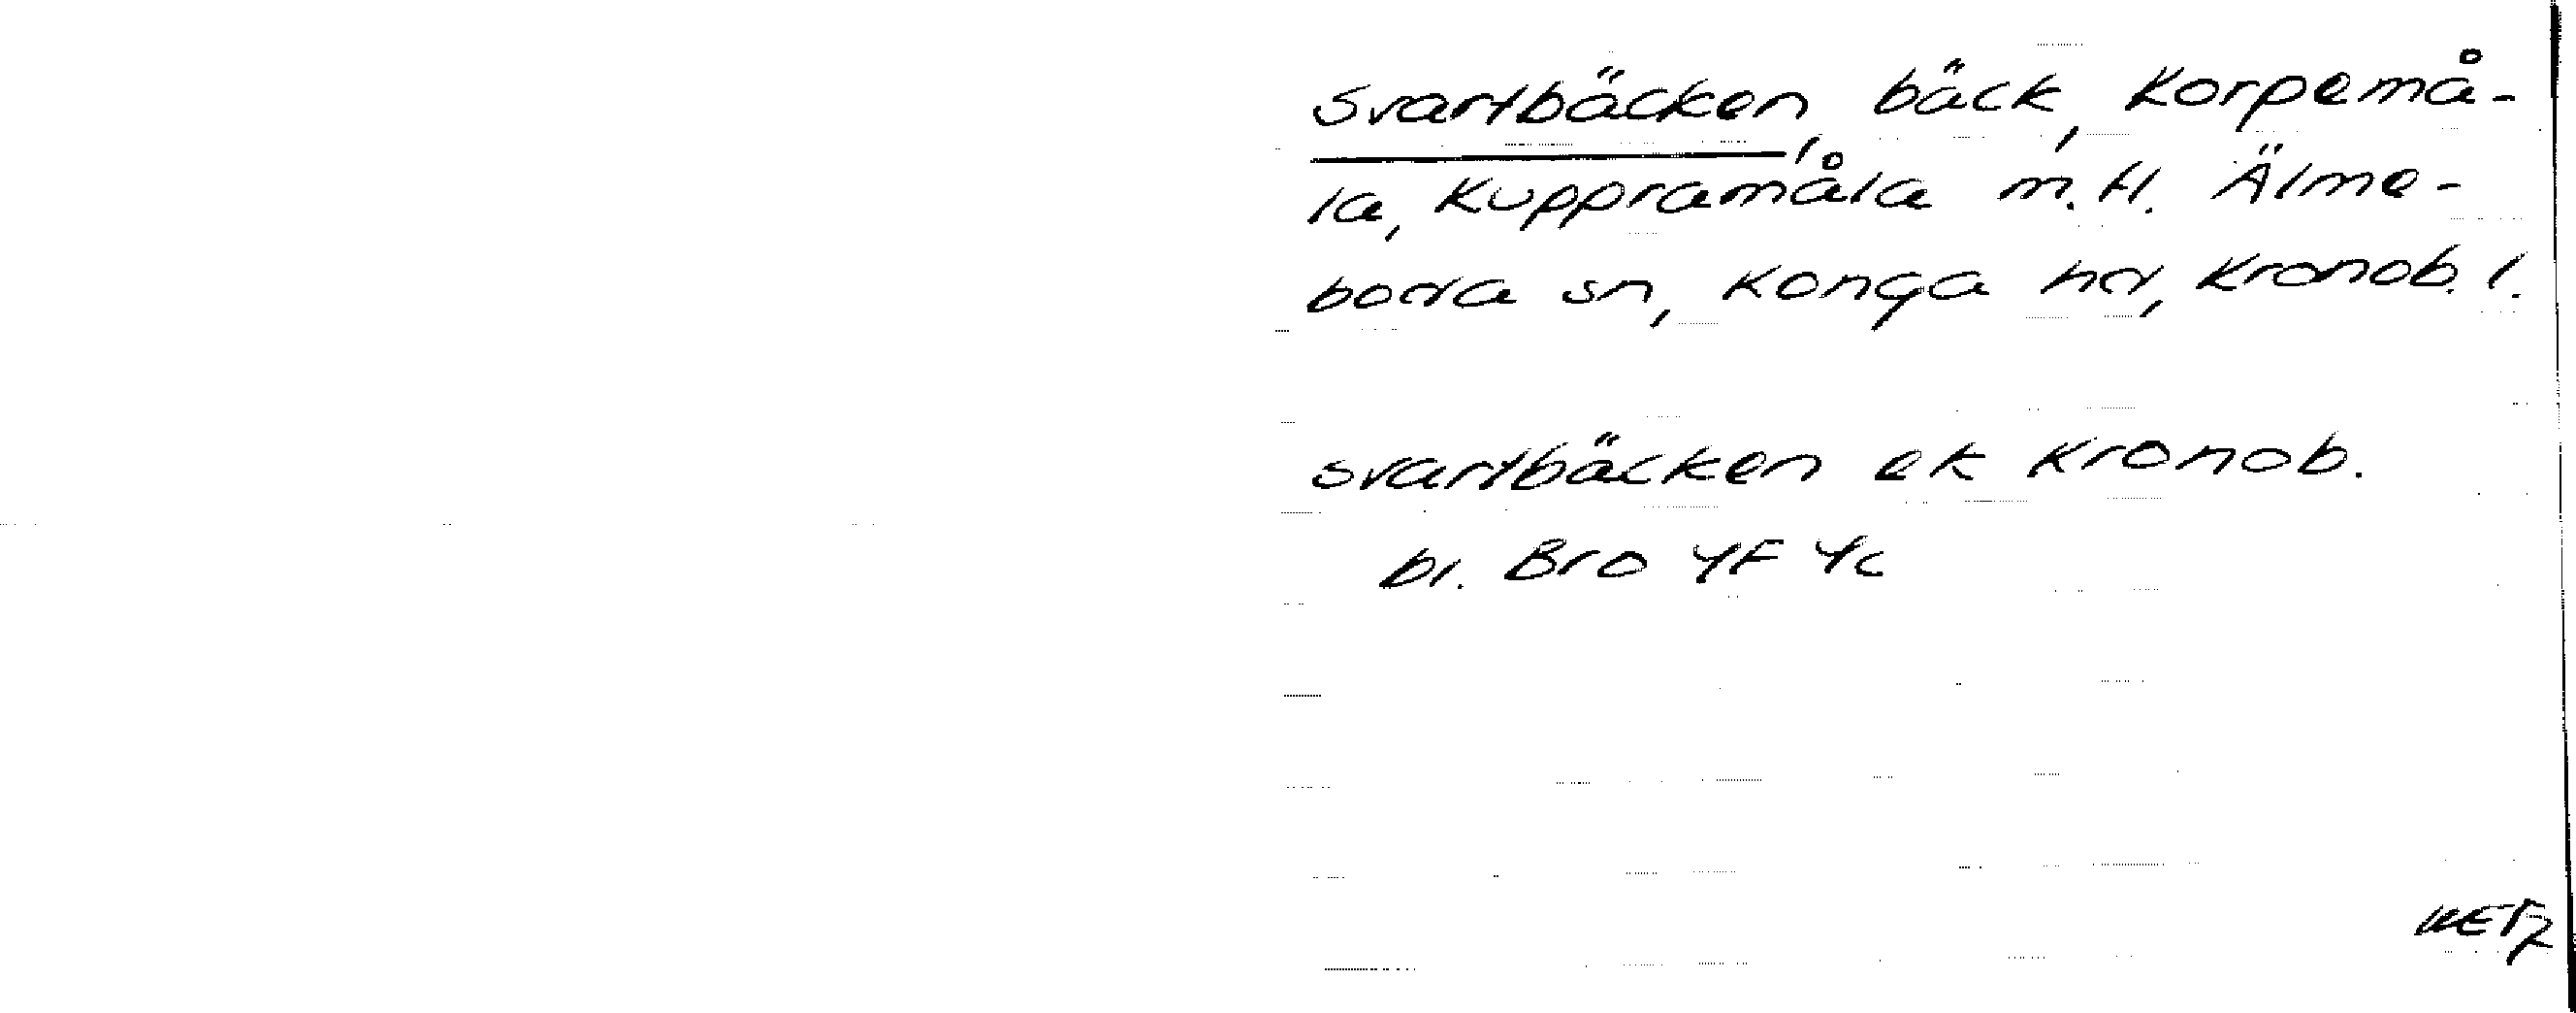 Svartbäcken, bäck, Korpemå-
la, Kuppramåla m.fl. Älme-
boda sn, Konga hd, Kronob. l.
Svartbäcken ek Kronob.
bl. Bro 4F 4c